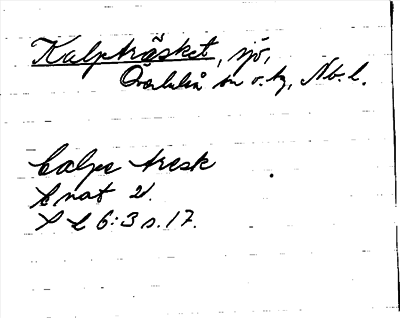 Kalpträsket, sjö,
Överluleå sn o. tg, Nb. l.
Calpe tresk
nat 2.
L 6:3 s. 17.